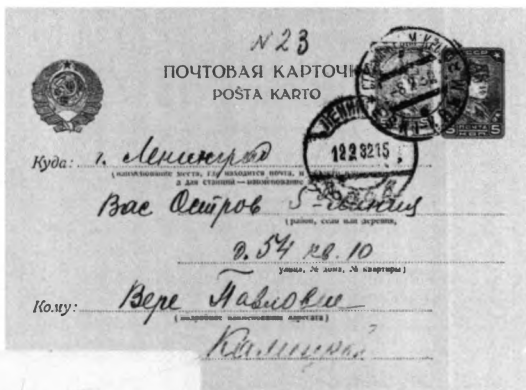 № 23
ПОЧТОВАЯ КАРТОЧК
POŜTA KARTO
СССР
ПОЧТА
5
ЛЕНИН
12 2 32 15
Куда: г. Ленинград
(наименование места, где находится почта, и
а для станций — наименование
Вас Остров 5-линия
(район, село или деревня,
д. 54 кв. 10
улица, № дома, № квартиры)
Кому: Вере Павловне
(подробное наименование адресата)
Калицкой